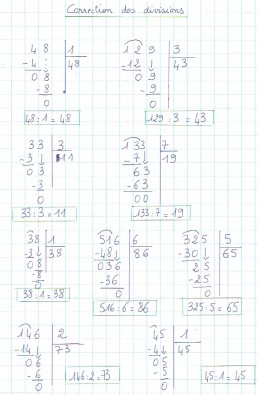 Correction des divisions
48 | 1
-4 | 48
08
-8
0
48:1 = 48
129 | 3
-12 | 43
09
-9
0
129:3 = 43
33 | 3
-3 | 11
03
-3
0
33:3 = 11
133 | 7
-7 | 19
63
-63
00
133:7 = 19
38 | 1
-3 | 38
08
-8
0
38:1 = 38
516 | 6
-48 | 86
036
-36
0
516:6 = 86
325 | 5
-30 | 65
25
-25
0
325:5 = 65
146 | 2
-14 | 73
06
-6
0
146:2 = 73
45 | 1
-4 | 45
05
-5
0
45:1 = 45